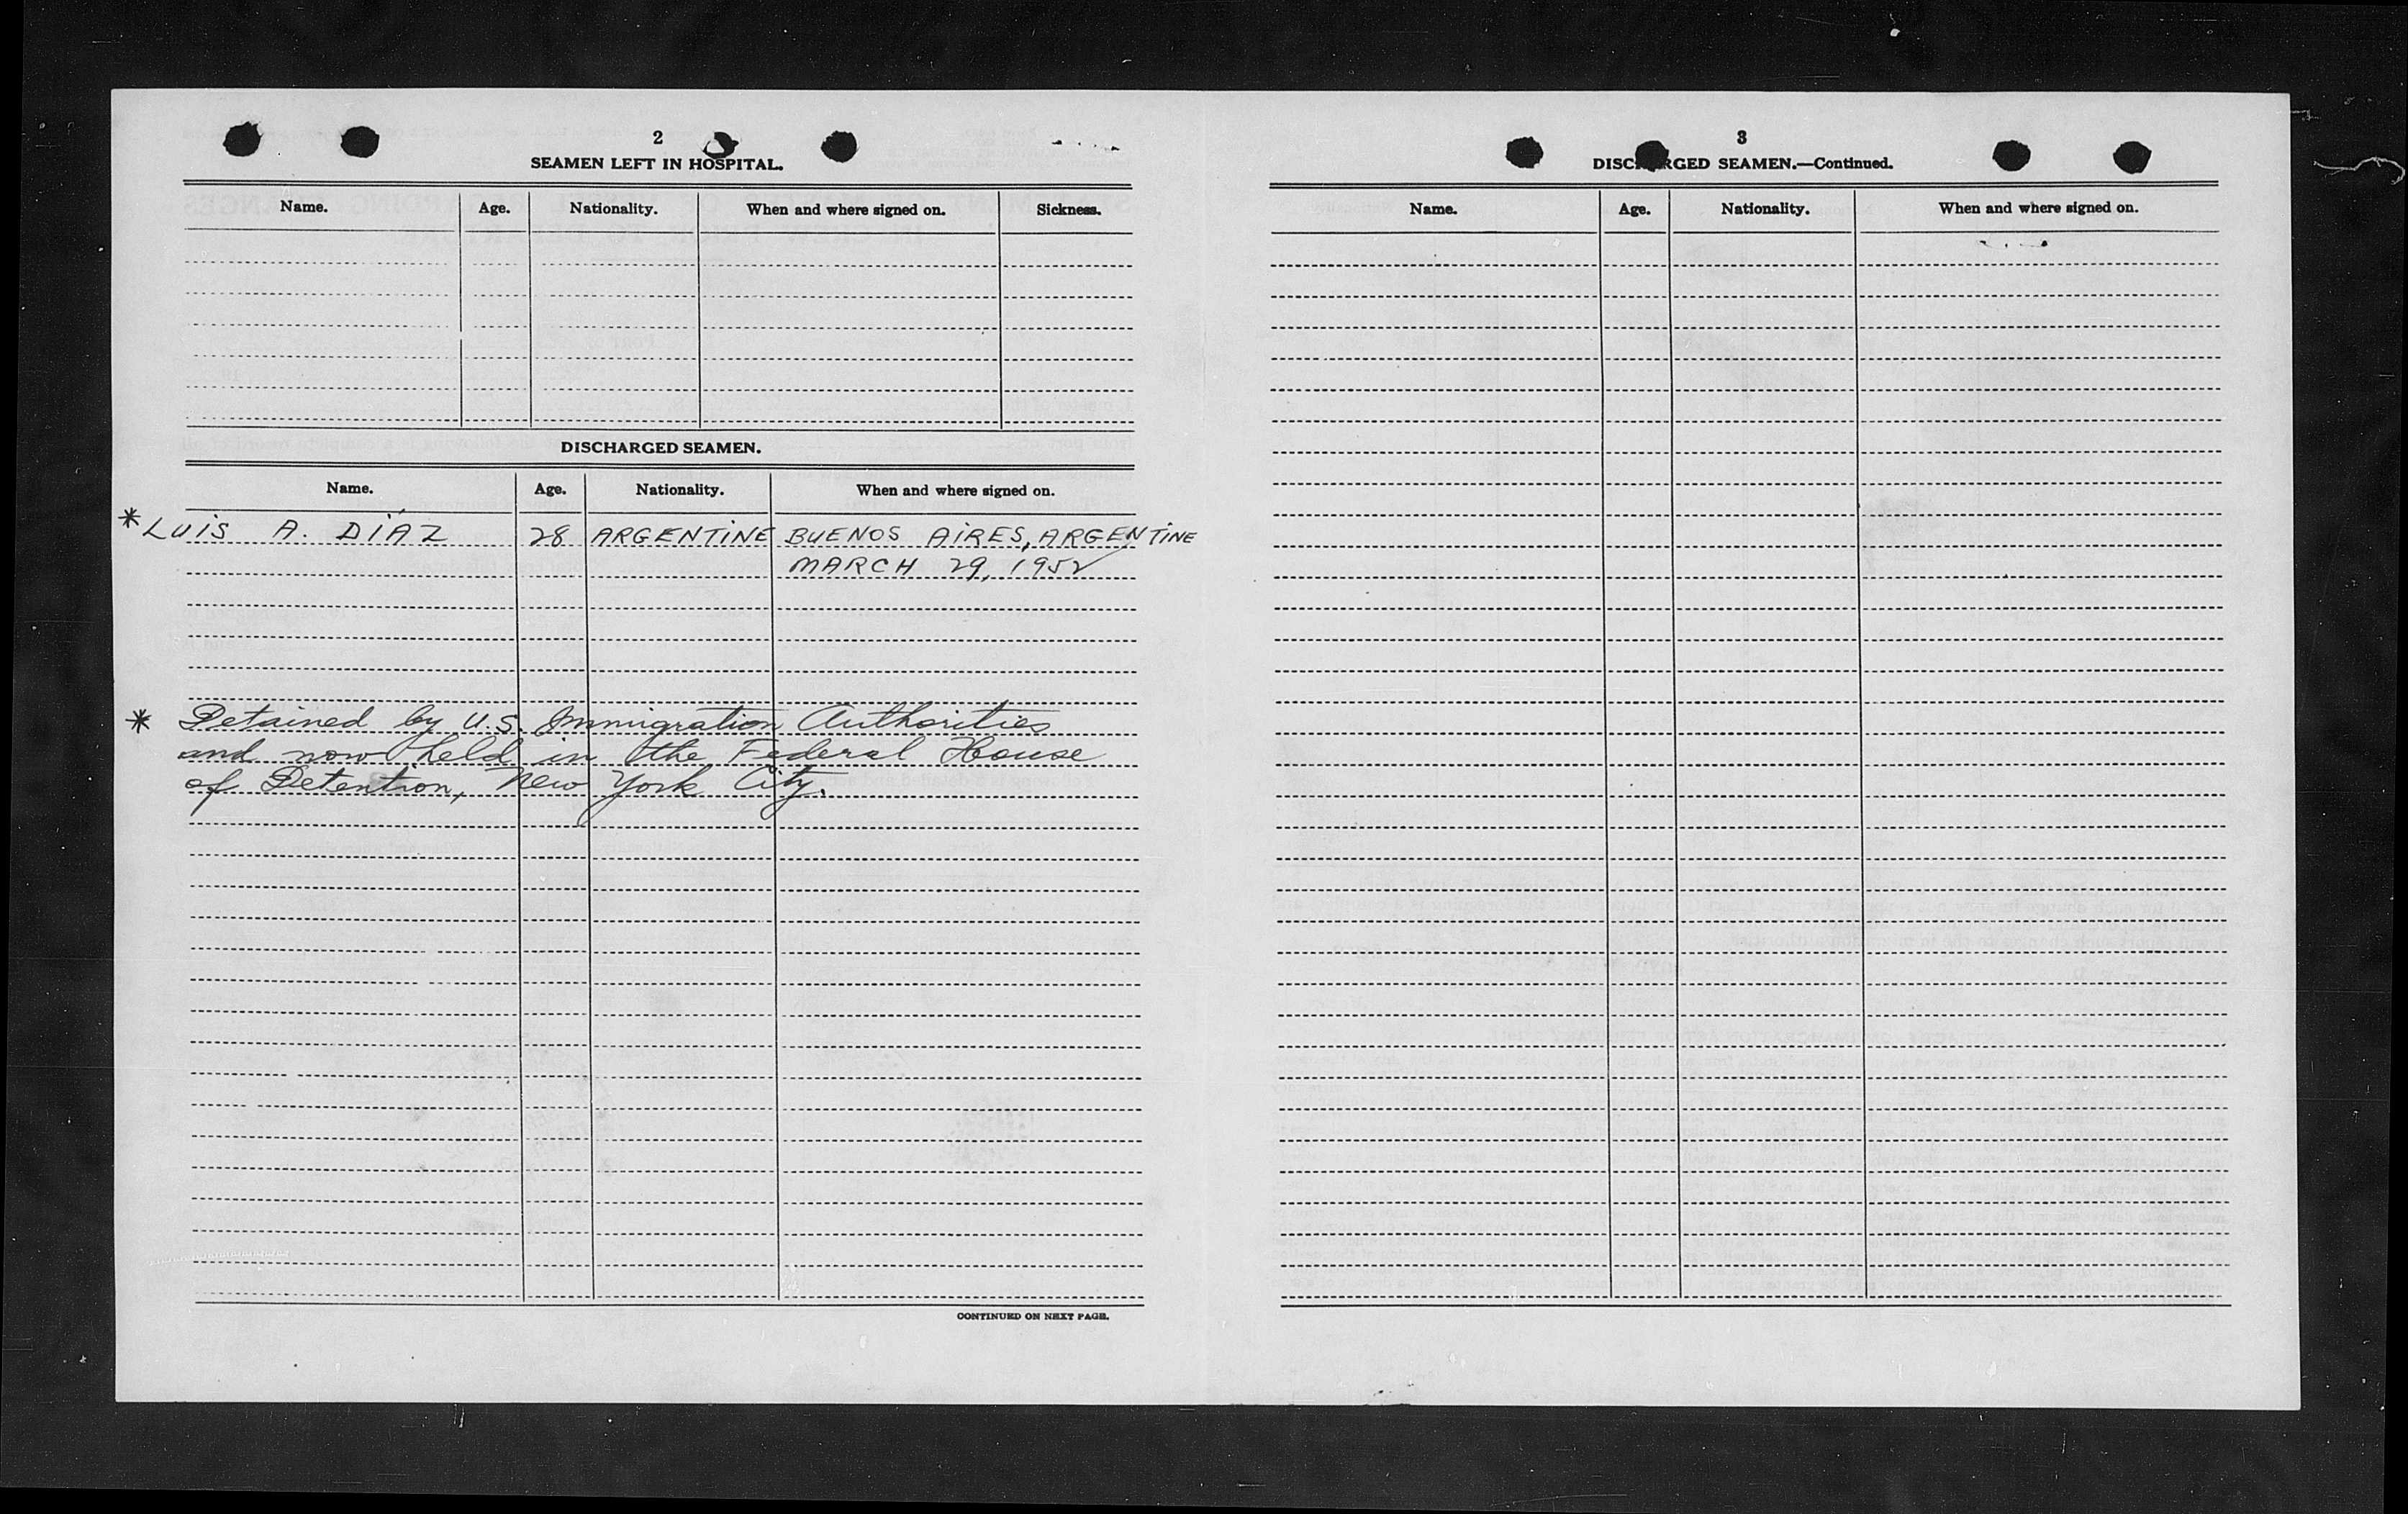 2
SEAMEN LEFT IN HOSPITAL.
Name. Age. Nationality. When and where signed on. Sickness.
DISCHARGED SEAMEN.
Name. Age. Nationality. When and where signed on.
* LUIS A. DÍAZ 28 ARGENTINE BUENOS AIRES, ARGENTINE
MARCH 29, 1952
* Detained by U.S. Immigration Authorities
and now held in the Federal House
of Detention, New York City.
CONTINUED ON NEXT PAGE.
3
DISCHARGED SEAMEN.—Continued.
Name. Age. Nationality. When and where signed on.